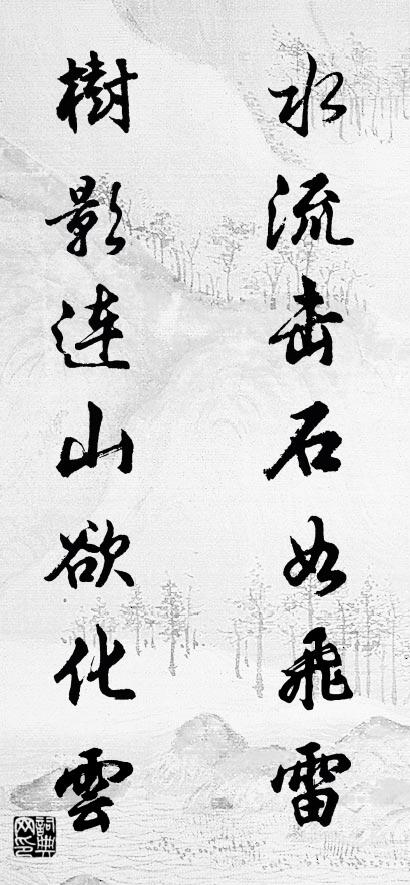 水流击石如飛雷
樹影連山欲化雲
詞典网印